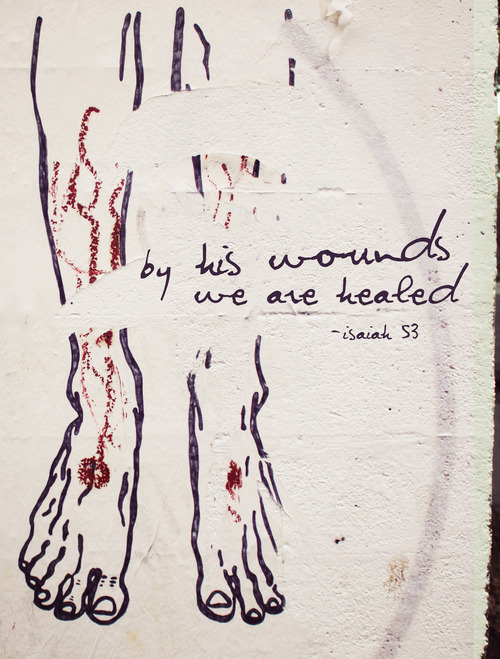 by his wounds
we are healed
-isaiah 53